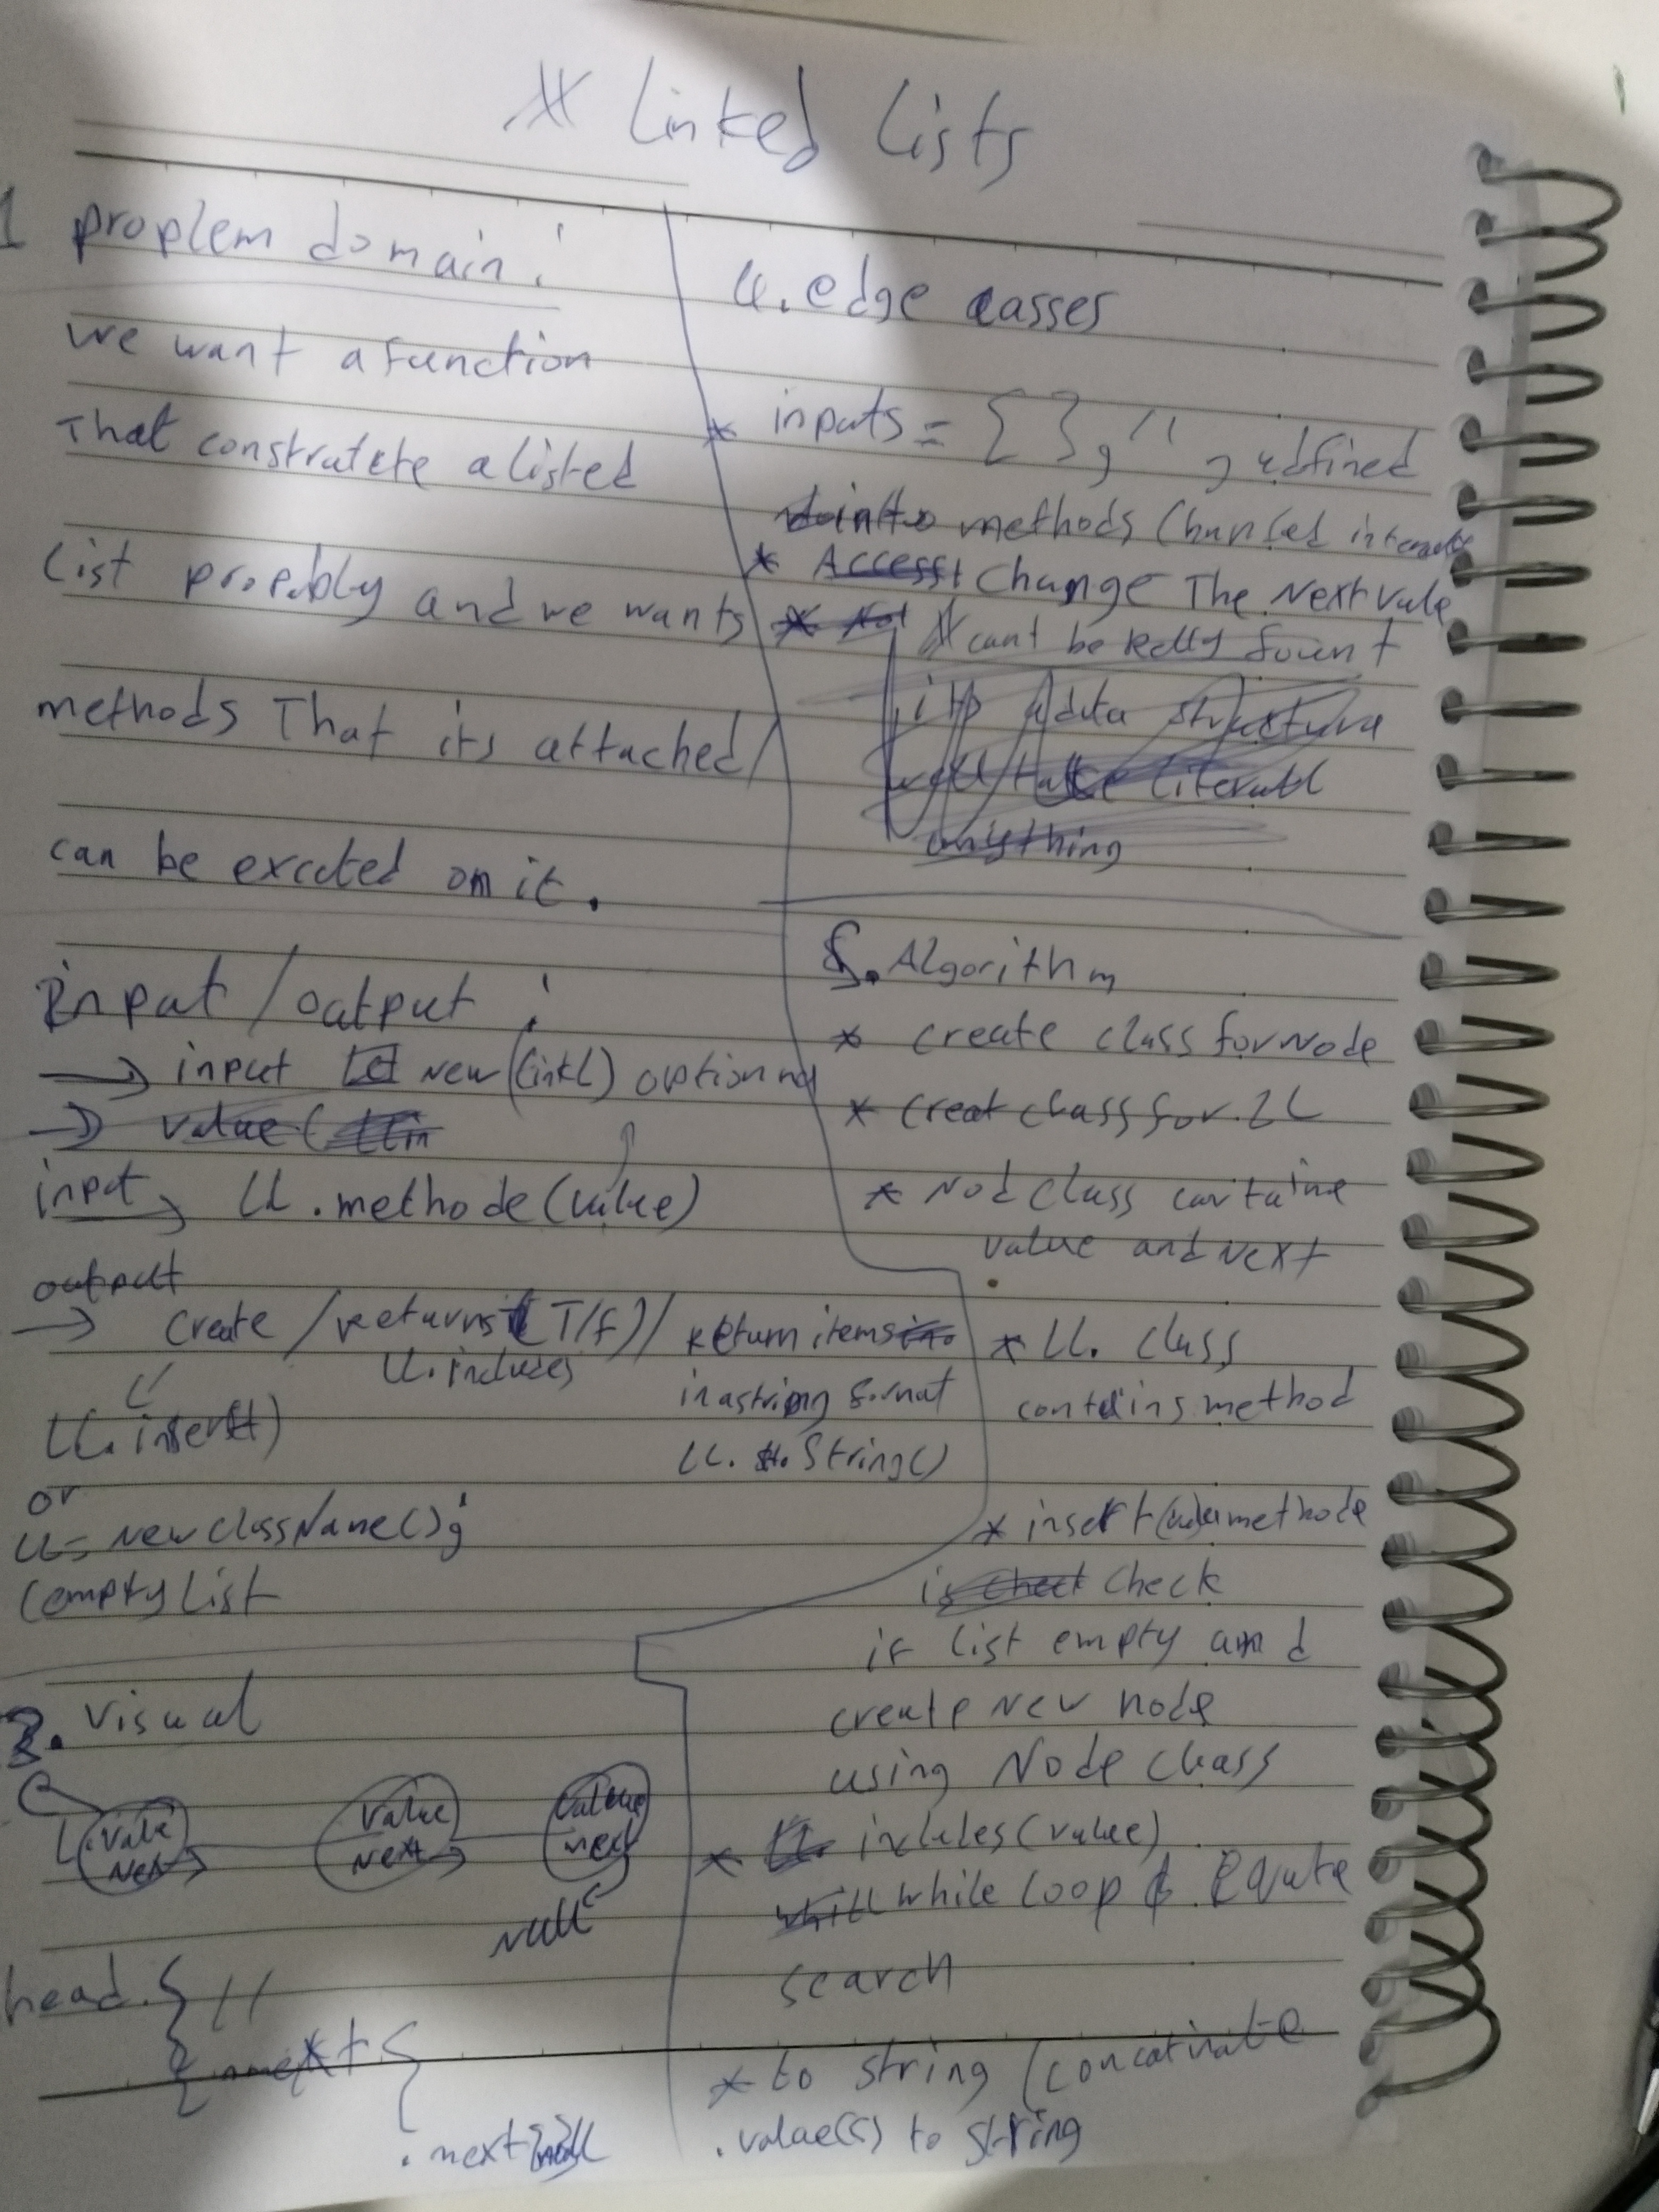 # Linked Lists
1 proplem domain :
we want a function
That constratete a listed
List propebly and we wants
methods That its attached
can be excuted on it.
Input / output :
→ input new (linkl) optional
→ value (
input → LL.methode(value)
output
→ create / returns (T/f) / return items
LL.includes in a string format
LL.insert() LL. String()
or
LL = New className();
(empty list
2. Visual
L. Value Value Value
Next Next next
null
head. { //
{ next {
. next null
4. edge casses
* inputs = { }, '' , udfined
methods
* Access Change The Next vale
cant be
its a data structure
will take literall
anything
5. Algorithm
* create class for Node
* creat class for LL
* Nod class containe
value and next
* LL. class
contains method
* insert (value) methode
is check check
if list empty and
create new node
using Node class
* LL. includes(value)
while loop & Equate
search
* to string (concatinate
.value(s) to string